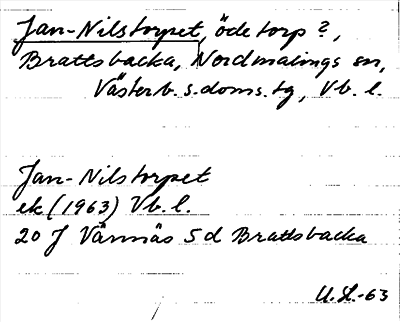 Jan-Nilstorpet, öde torp?,
Brattsbacka, Nordmalings sn,
Västerb. s. doms. tg, Vb. l.
Jan-Nilstorpet
ek (1963) Vb. l.
20 J Vännäs 5 d Brattsbacka
U.L.-63